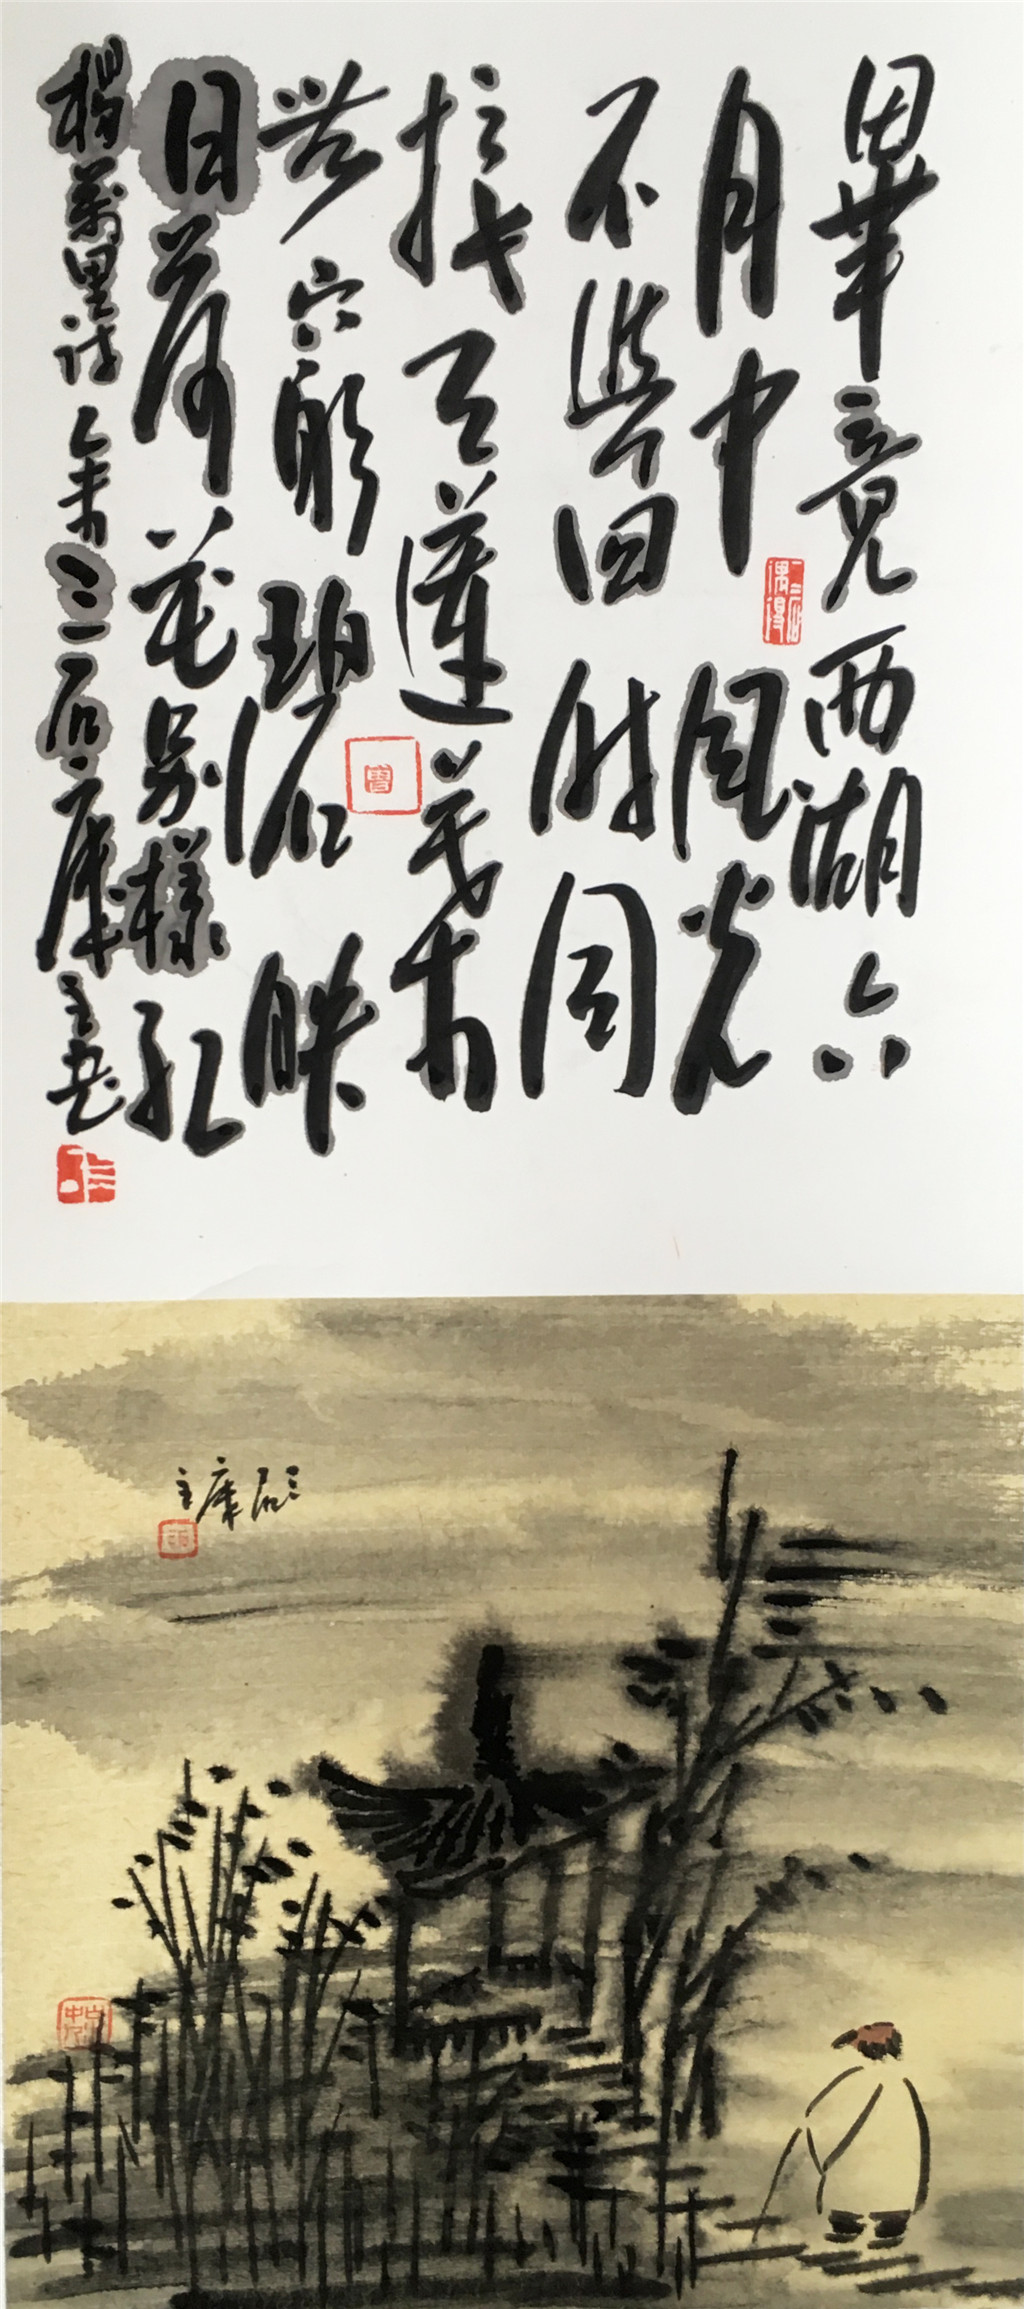 畢竟西湖六
月中風光
不與四時同
接天蓮葉
無窮碧映
日荷花別樣紅
楊萬里詩 余三石庫主書
三石庫主